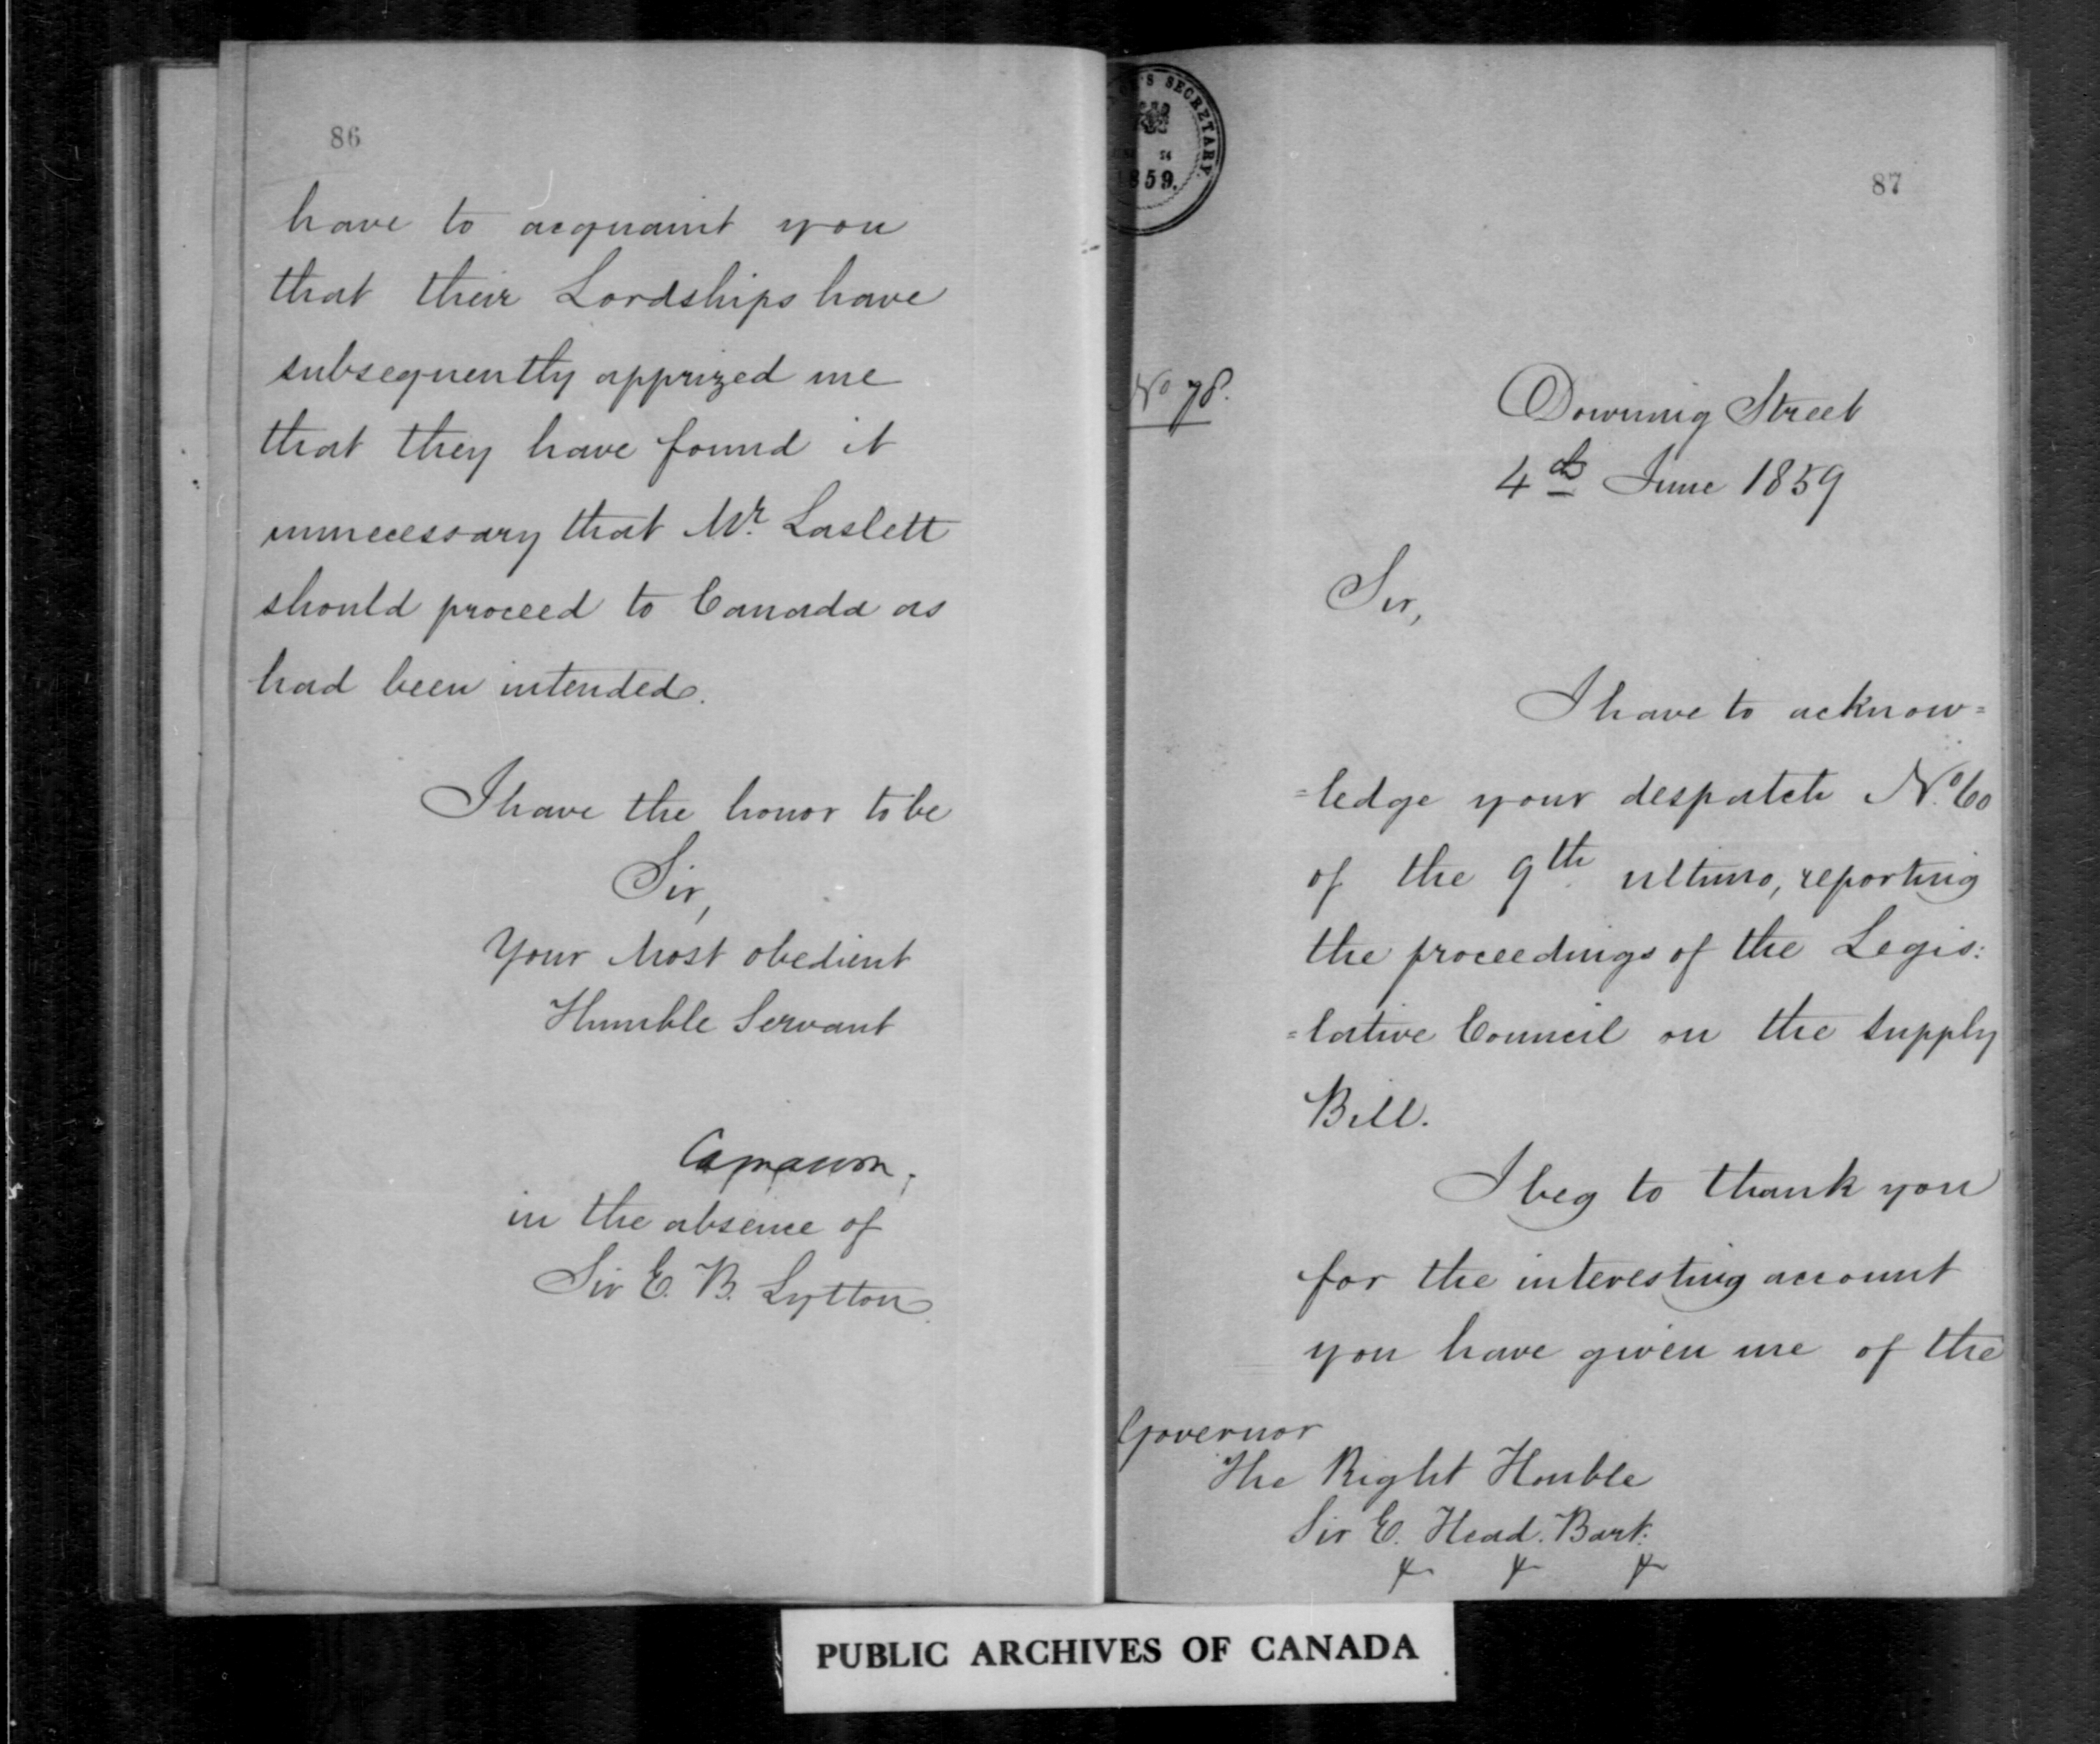 86
have to acquaint you
that their Lordships have
subsequently apprized me
that they have found it
unnecessary that Mr. Laslett
should proceed to Canada as
had been intended.
I have the honor to be
Sir,
Your Most obedient
Humble Servant
Carnarvon,
in the absence of
Sir E. B. Lytton
'S SECRETARY.
1859.
87
No 78.
Downing Street
4th June 1859
Sir,
I have to acknow=
=ledge your despatch No. 60
of the 9th ultimo, reporting
the proceedings of the Legis:
=lative Council on the Supply
Bill.
I beg to thank you
for the interesting account
you have given me of the
Governor
The Right Honble
Sir E. Head. Bart.
PUBLIC ARCHIVES OF CANADA